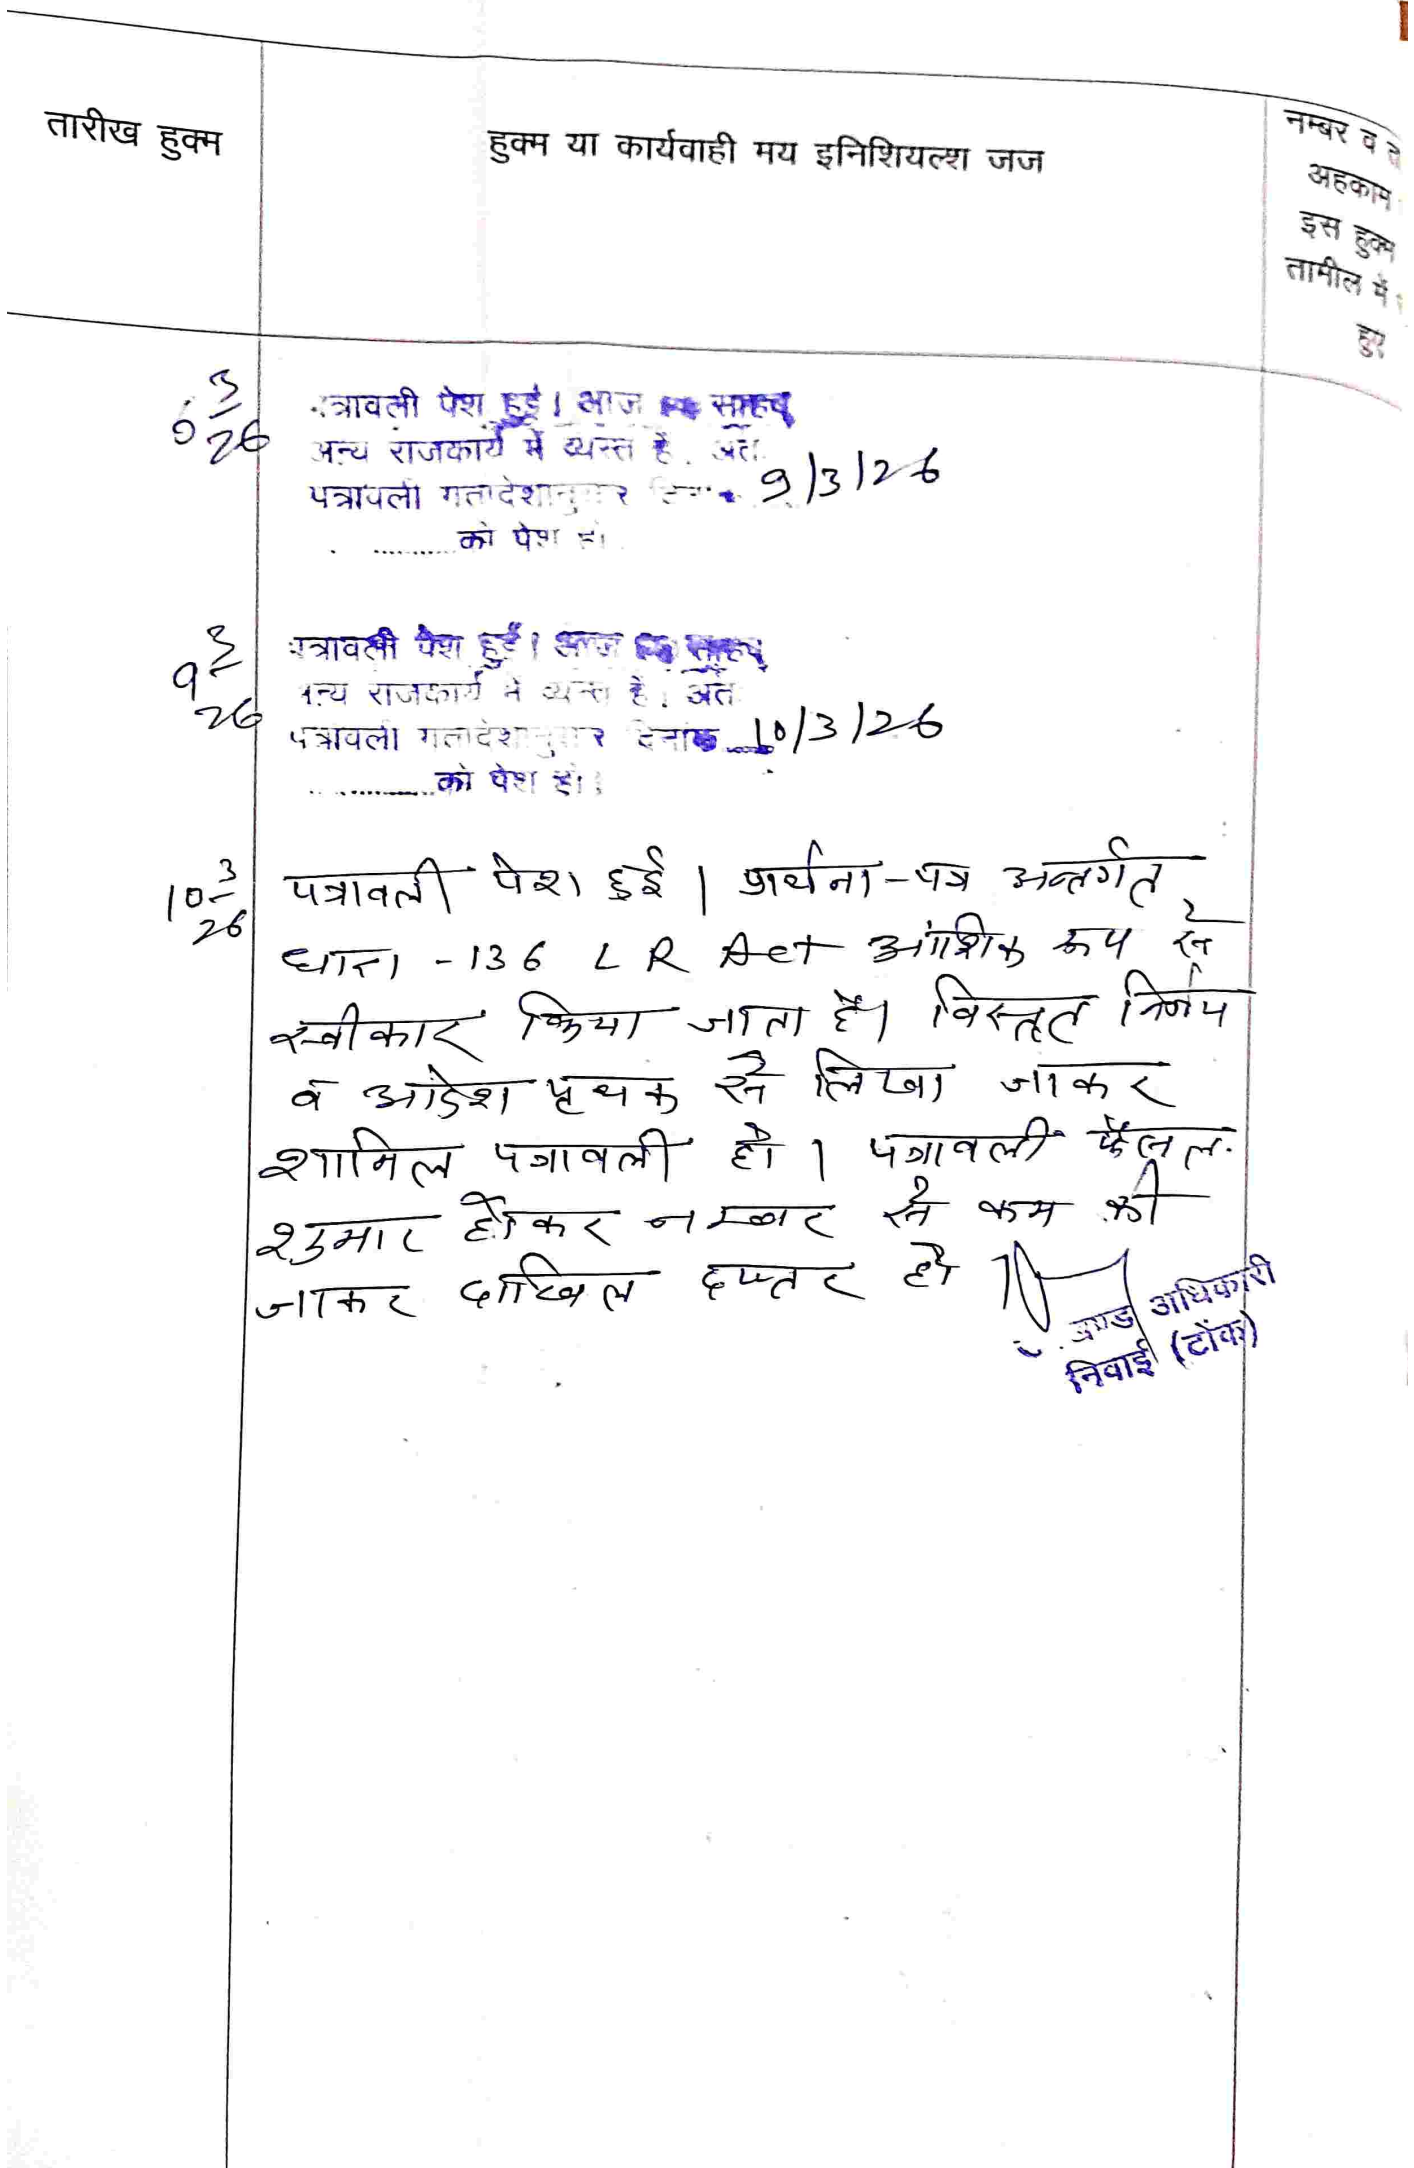 तारीख हुक्म
हुक्म या कार्यवाही मय इनिशियल्श जज
नम्बर व
अहकाम
इस हुक्म
तामील में
हुए
6 3/26
पत्रावली पेश हुई। आज साहब
अन्य राजकार्य में व्यस्त है. अतः
पत्रावली गतादेशानुसार 9/3/26
............को पेश हो
9 3/26
पत्रावली पेश हुई। आज साहब
अन्य राजकार्य में व्यस्त है. अतः
पत्रावली गतादेशानुसार दिनांक 10/3/26
............को पेश हो।
10 3/26
पत्रावली पेश हुई। प्रार्थना-पत्र अन्तर्गत
धारा -136 L R Act आंशिक रूप से
स्वीकार किया जाता है। विस्तृत निर्णय
व आदेश पृथक से लिखा जाकर
शामिल पत्रावली हो। पत्रावली फैसल
शुमार होकर नम्बर से कम की
जाकर दाखिल दफ्तर हो
अधिकारी
निवाई (टोंक)